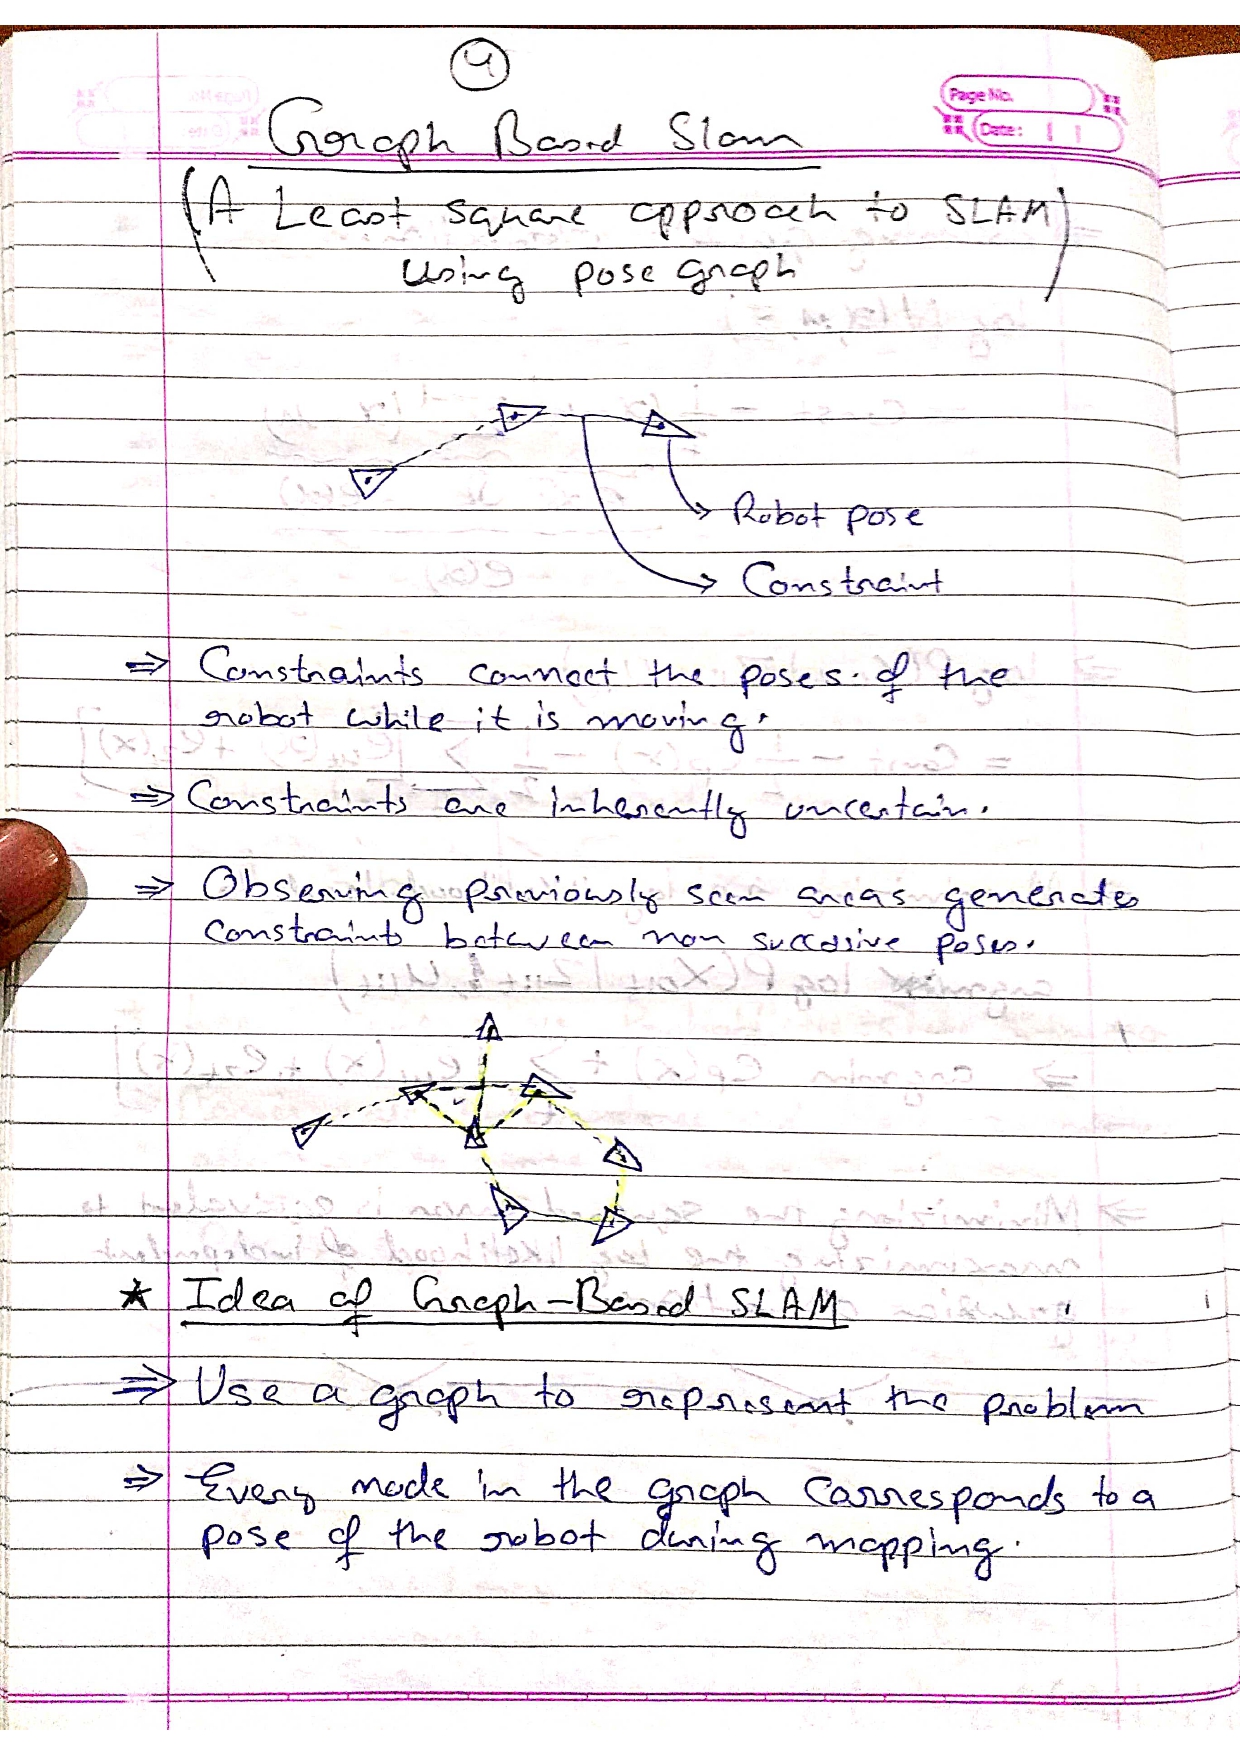 4
Page No.
Date:
Graph Based Slam
(A Least square approach to SLAM)
using pose graph
Robot pose
Constraint
⇒ Constraints connect the poses of the
robot while it is moving.
⇒ Constraints are inherently uncertain.
⇒ Observing previously seen areas generates
constraints between non succesive poses.
★ Idea of Graph-Based SLAM
⇒ Use a graph to represent the problem
⇒ Every node in the graph Corresponds to a
pose of the robot during mapping.